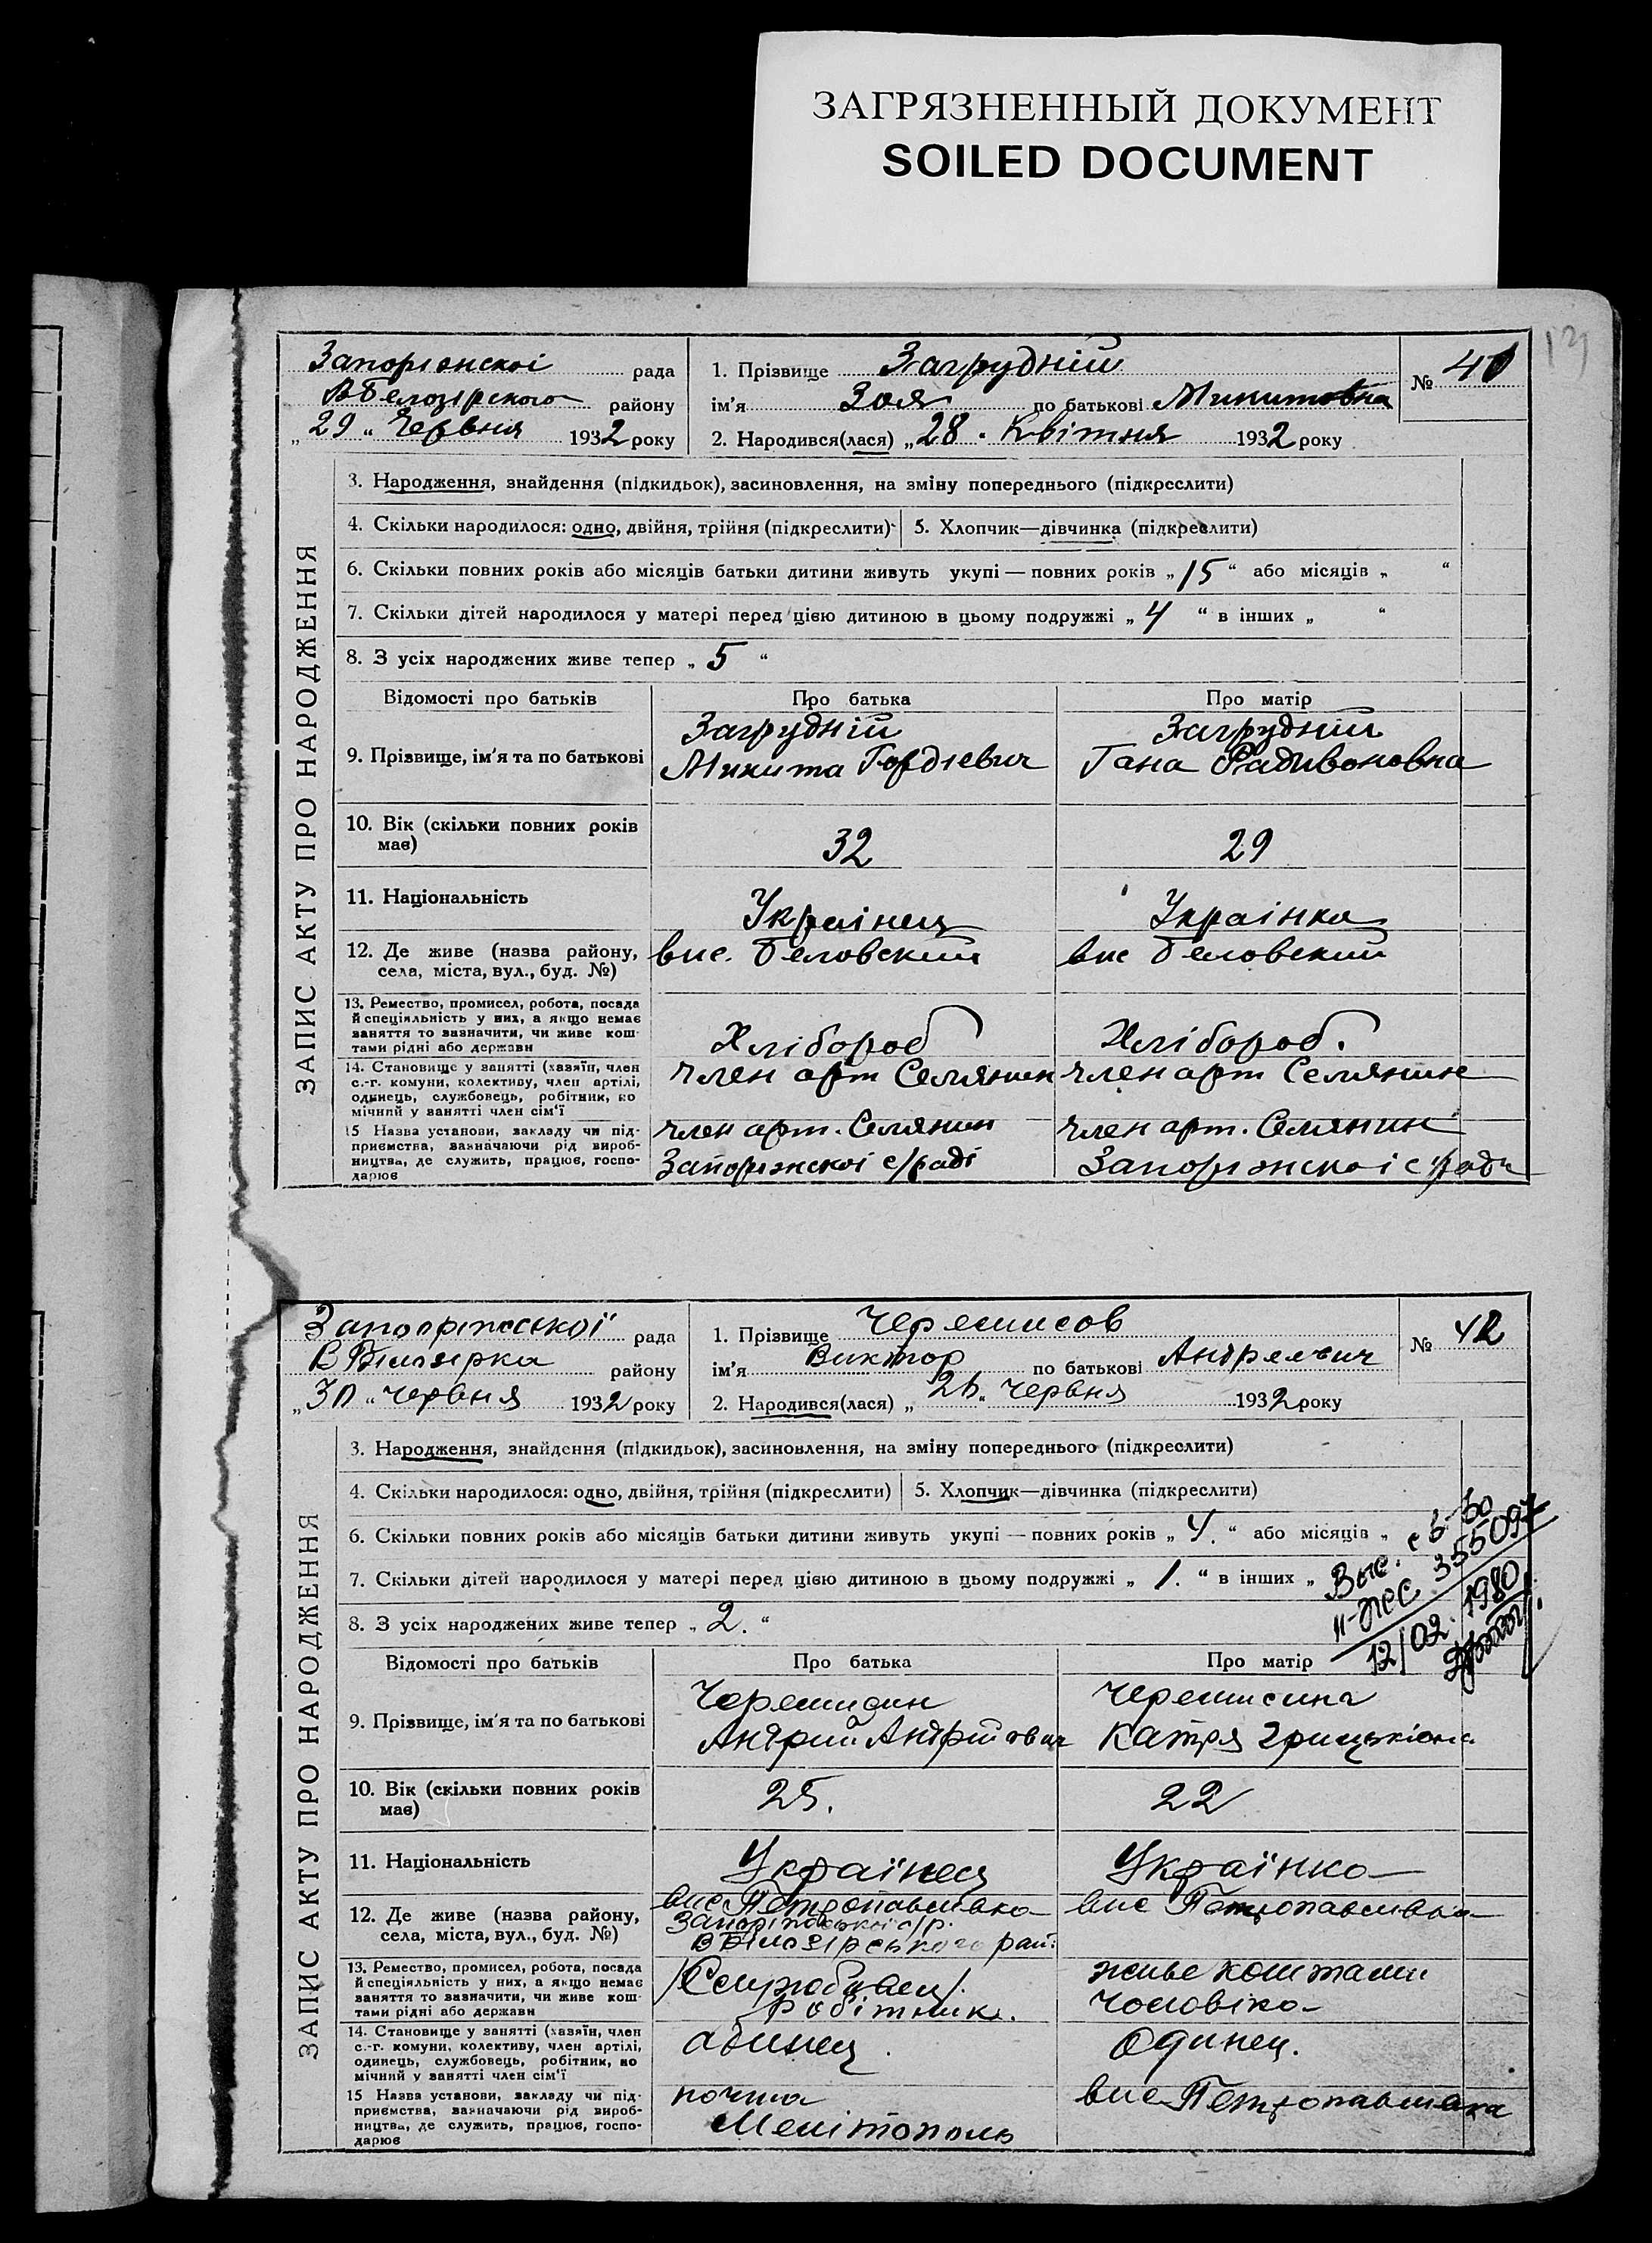 ЗАГРЯЗНЕННЫЙ ДОКУМЕНТ
SOILED DOCUMENT
ЗАПИС АКТУ ПРО НАРОДЖЕННЯ
Запоріжскоі рада
ВБелозірского району
„29“ Червня 1932 року
1. Прізвище Загрудній
ім'я Зоя по батькові Микитовна
2. Народився(лася) „28. Квітня 1932 року
№ 41
3. Народження, знайдення (підкидьок), засиновлення, на зміну попереднього (підкреслити)
4. Скільки народилося: одно, двійня, трійня (підкреслити) 5. Хлопчик—дівчинка (підкреслити)
6. Скільки повних років або місяців батьки дитини живуть укупі — повних років „15“ або місяців „ “
7. Скільки дітей народилося у матері перед цією дитиною в цьому подружжі „4“ в інших „ “
8. З усіх народжених живе тепер „5“
Відомості про батьків Про батька Про матір
9. Прізвище, ім'я та по батькові
Загрудній
Микита Гордієвич
Загрудній
Гана Радивоновна
10. Вік (скільки повних років
має)
32 29
11. Національність
Украінец Украінка
12. Де живе (назва району,
села, міста, вул., буд. №)
вис. Беловский вис Беловский
13. Ремество, промисел, робота, посада
й спеціяльність у них, а якщо немає
заняття то зазначити, чи живе кош-
тами рідні або держави
Хлібороб Хлібороб.
14. Становище у занятті (хазяїн, член
с.-г. комуни, колективу, член артілі,
одинець, службовець, робітник, по
мічний у занятті член сім'ї
член арт Селянин член арт Селянин
15 Назва установи, закладу чи під-
приємства, зазначаючи рід вироб-
ництва, де служить, працює, госпо-
дарює
член арт. Селянин
Запоріжскоі с/раді
член арт. Селянин
Запоріжскоі с/ради
ЗАПИС АКТУ ПРО НАРОДЖЕННЯ
Запоріжської рада
В Білозірка району
„30“ червня 1932 року
1. Прізвище Черемисов
ім'я Виктор по батькові Андреевич
2. Народився(лася) „26“ червня 1932 року
№ 42
3. Народження, знайдення (підкидьок), засиновлення, на зміну попереднього (підкреслити)
4. Скільки народилося: одно, двійня, трійня (підкреслити) 5. Хлопчик—дівчинка (підкреслити)
6. Скільки повних років або місяців батьки дитини живуть укупі — повних років „4.“ або місяців „
7. Скільки дітей народилося у матері перед цією дитиною в цьому подружжі „1.“ в інших „
8. З усіх народжених живе тепер „2.“
Выс. св-во
355097
12/02. 1980
Відомості про батьків Про батька Про матір
9. Прізвище, ім'я та по батькові
Черемисин
Андрий Андрійович
Черемисина
Катря Грицьківна
10. Вік (скільки повних років
має)
25. 22
11. Національність
Українец Українка
12. Де живе (назва району,
села, міста, вул., буд. №)
вис Петропавлівка
Запорізької с/р.
В Білозірського рай.
вис Петропавлівка
13. Ремество, промисел, робота, посада
й спеціяльність у них, а якщо немає
заняття то зазначити, чи живе кош-
тами рідні або держави
робітник.
живе коштами
чоловіка
14. Становище у занятті (хазяїн, член
с.-г. комуни, колективу, член артілі,
одинець, службовець, робітник, по
мічний у занятті член сім'ї
адинец. Одинец.
15 Назва установи, закладу чи під-
приємства, зазначаючи рід вироб-
ництва, де служить, працює, госпо-
дарює
почта
Мелітополь
вис Петропавлівка